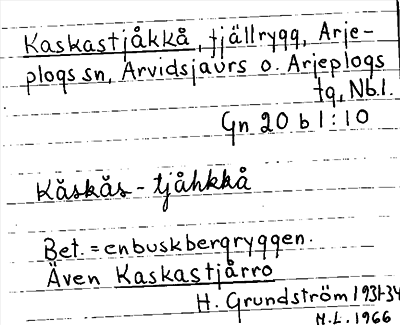 Kaskastjåkkå, fjällrygg, Arje-
plogs sn, Arvidsjaurs o. Arjeplogs
tg, Nb.l.
Gn 20 b 1:10
Kăskăs - tjåhkkå
Bet. = enbuskbergryggen.
Även Kaskastjårro
H. Grundström 1931-34
H.L. 1966